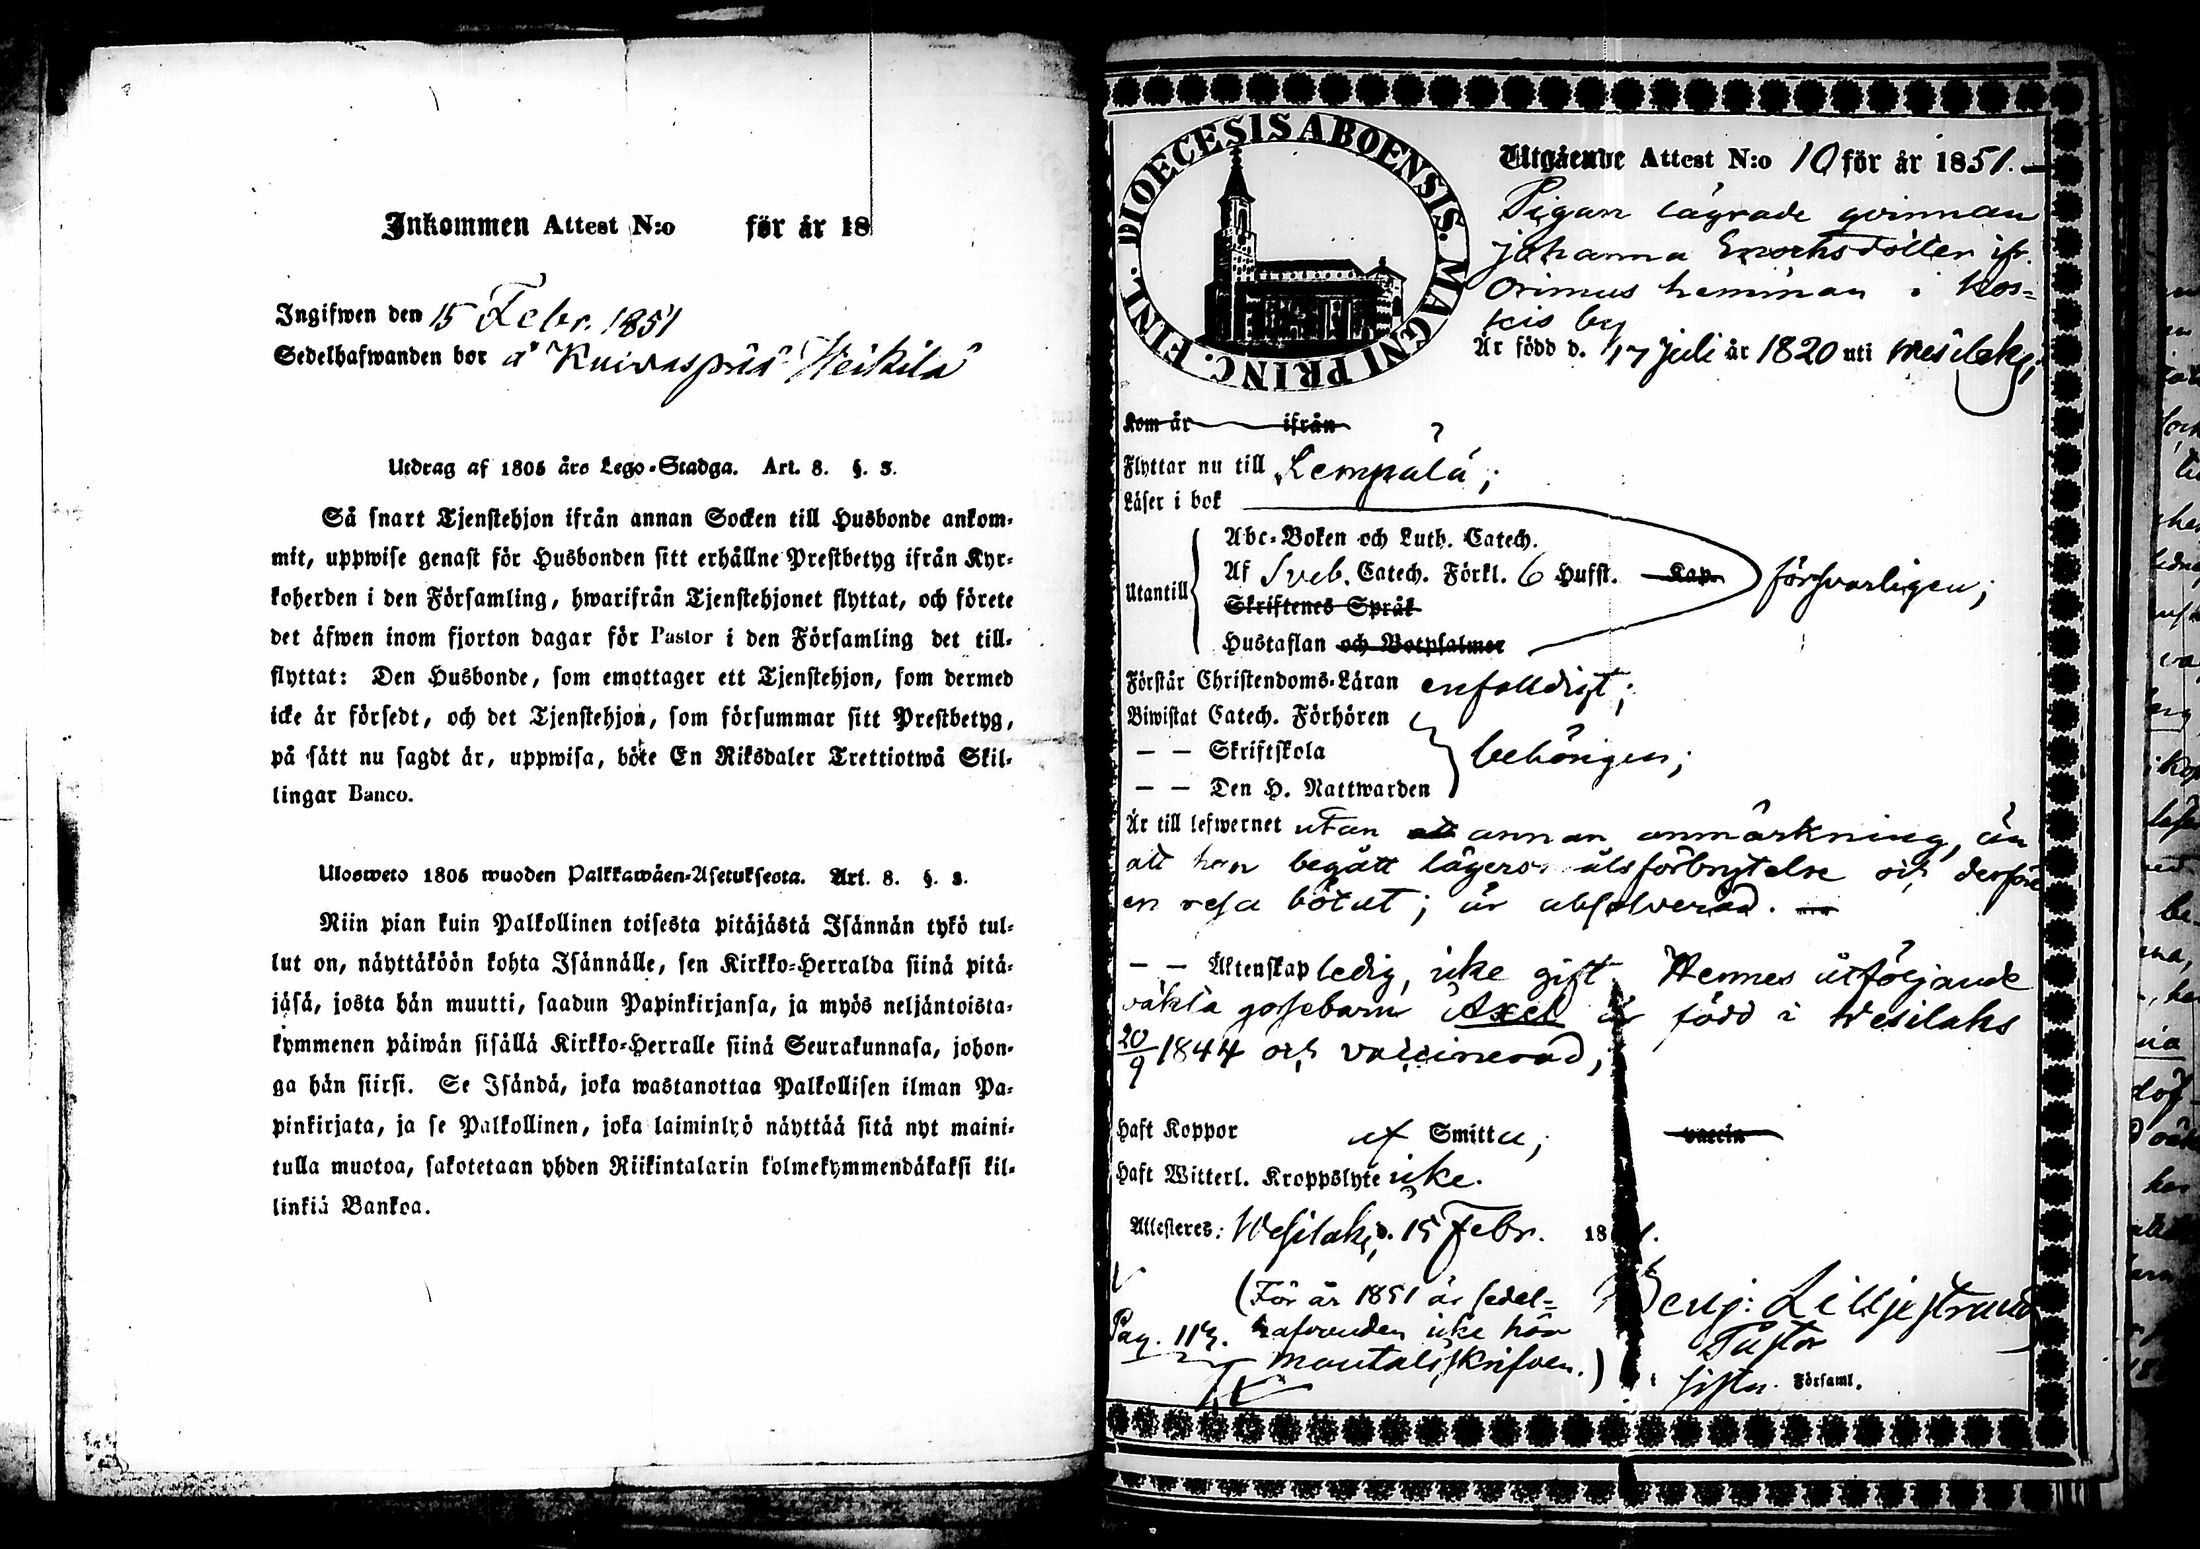 Inkommen Attest N:o för år 18
Ingifwen den 15 Febr. 1851
Sedelhafwanden bor å Kuivaspää Heikilä
Utdrag af 1805 års Lego-Stadga. Art. 8. §. 3.
Så snart Tjenstehjon ifrån annan Socken till Husbonde ankom-
mit, uppwise genast för Husbonden sitt erhållne Prestbetyg ifrån Kyr-
koherden i den Församling, hwarifrån Tjenstehjonet flyttat, och förete
det äfwen inom fjorton dagar för Pastor i den Församling det till-
flyttat: Den Husbonde, som emottager ett Tjenstehjon, som dermed
icke är försedt, och det Tjenstehjon, som försummar sitt Prestbetyg,
på sätt nu sagdt är, uppwisa, böte En Riksdaler Trettiotwå Skil-
lingar Banco.
Ulosweto 1805 wuoden Palkkawäen-Asetuksesta. Art. 8. §. 3.
Niin pian kuin Palkollinen toisesta pitäjästä Isännän tykö tul-
lut on, näyttäköön kohta Isännälle, sen Kirkko-Herralda siinä pitä-
jäsä, josta hän muutti, saadun Papinkirjansa, ja myös neljäntoista-
kymmenen päiwän sisällä Kirkko-Herralle siinä Seurakunnasa, johon-
ga hän siirsi. Se Isändä, joka wastanottaa Palkollisen ilman Pa-
pinkirjata, ja se Palkollinen, joka laiminlyö näyttää sitä nyt maini-
tulla muotoa, sakotetaan yhden Riikintalarin kolmekymmendäkaksi kil-
linkiä Bankoa.
DIOECESIS ABOENSIS. MAGNI PRINC. FINL.
Utgående Attest N:o 10 för år 1851.
Pigan lägrade qvinnan
Johanna Enochsdotter ifr.
Orimus hemman i Kos-
kis by
Är född d. 17 Juli år 1820 uti Wesilaks,
Kom år ifrån
Flyttar nu till Lempälä;
Läser i bok
Abc-Boken och Luth. Catech.
Utantill Af Sveb. Catech. Förkl. 6 Hufst. Kap. försvarligen;
Skriftenes Språk
Hustaflan och Botpsalmer
Förstår Christendoms-Läran enfalldigt;
Biwistat Catech. Förhören
— — Skriftskola behörigen;
— — Den H. Nattwarden
Är till lefwernet utan att annan anmärkning, än
att hon begått lägersmålsförbrytelse och derföre
en resa bötat; är absolverad.
— — Äktenskap ledig, icke gift. Hennes åtföljande
oäkta gossebarn Axel är född i Wesilaks
20/9 1844 och vaccinerad;
Haft Koppor af Smitta; vaccin
Haft Witterl. Kroppslyte icke.
Attesteres: Wesilaks d. 15 Febr. 18 1.
(För år 1851 är sedel-
hafvanden icke här
mantalsskrifven.)
Pag. 113.
Benj: Lilljestrand
Pastor
i Församl.